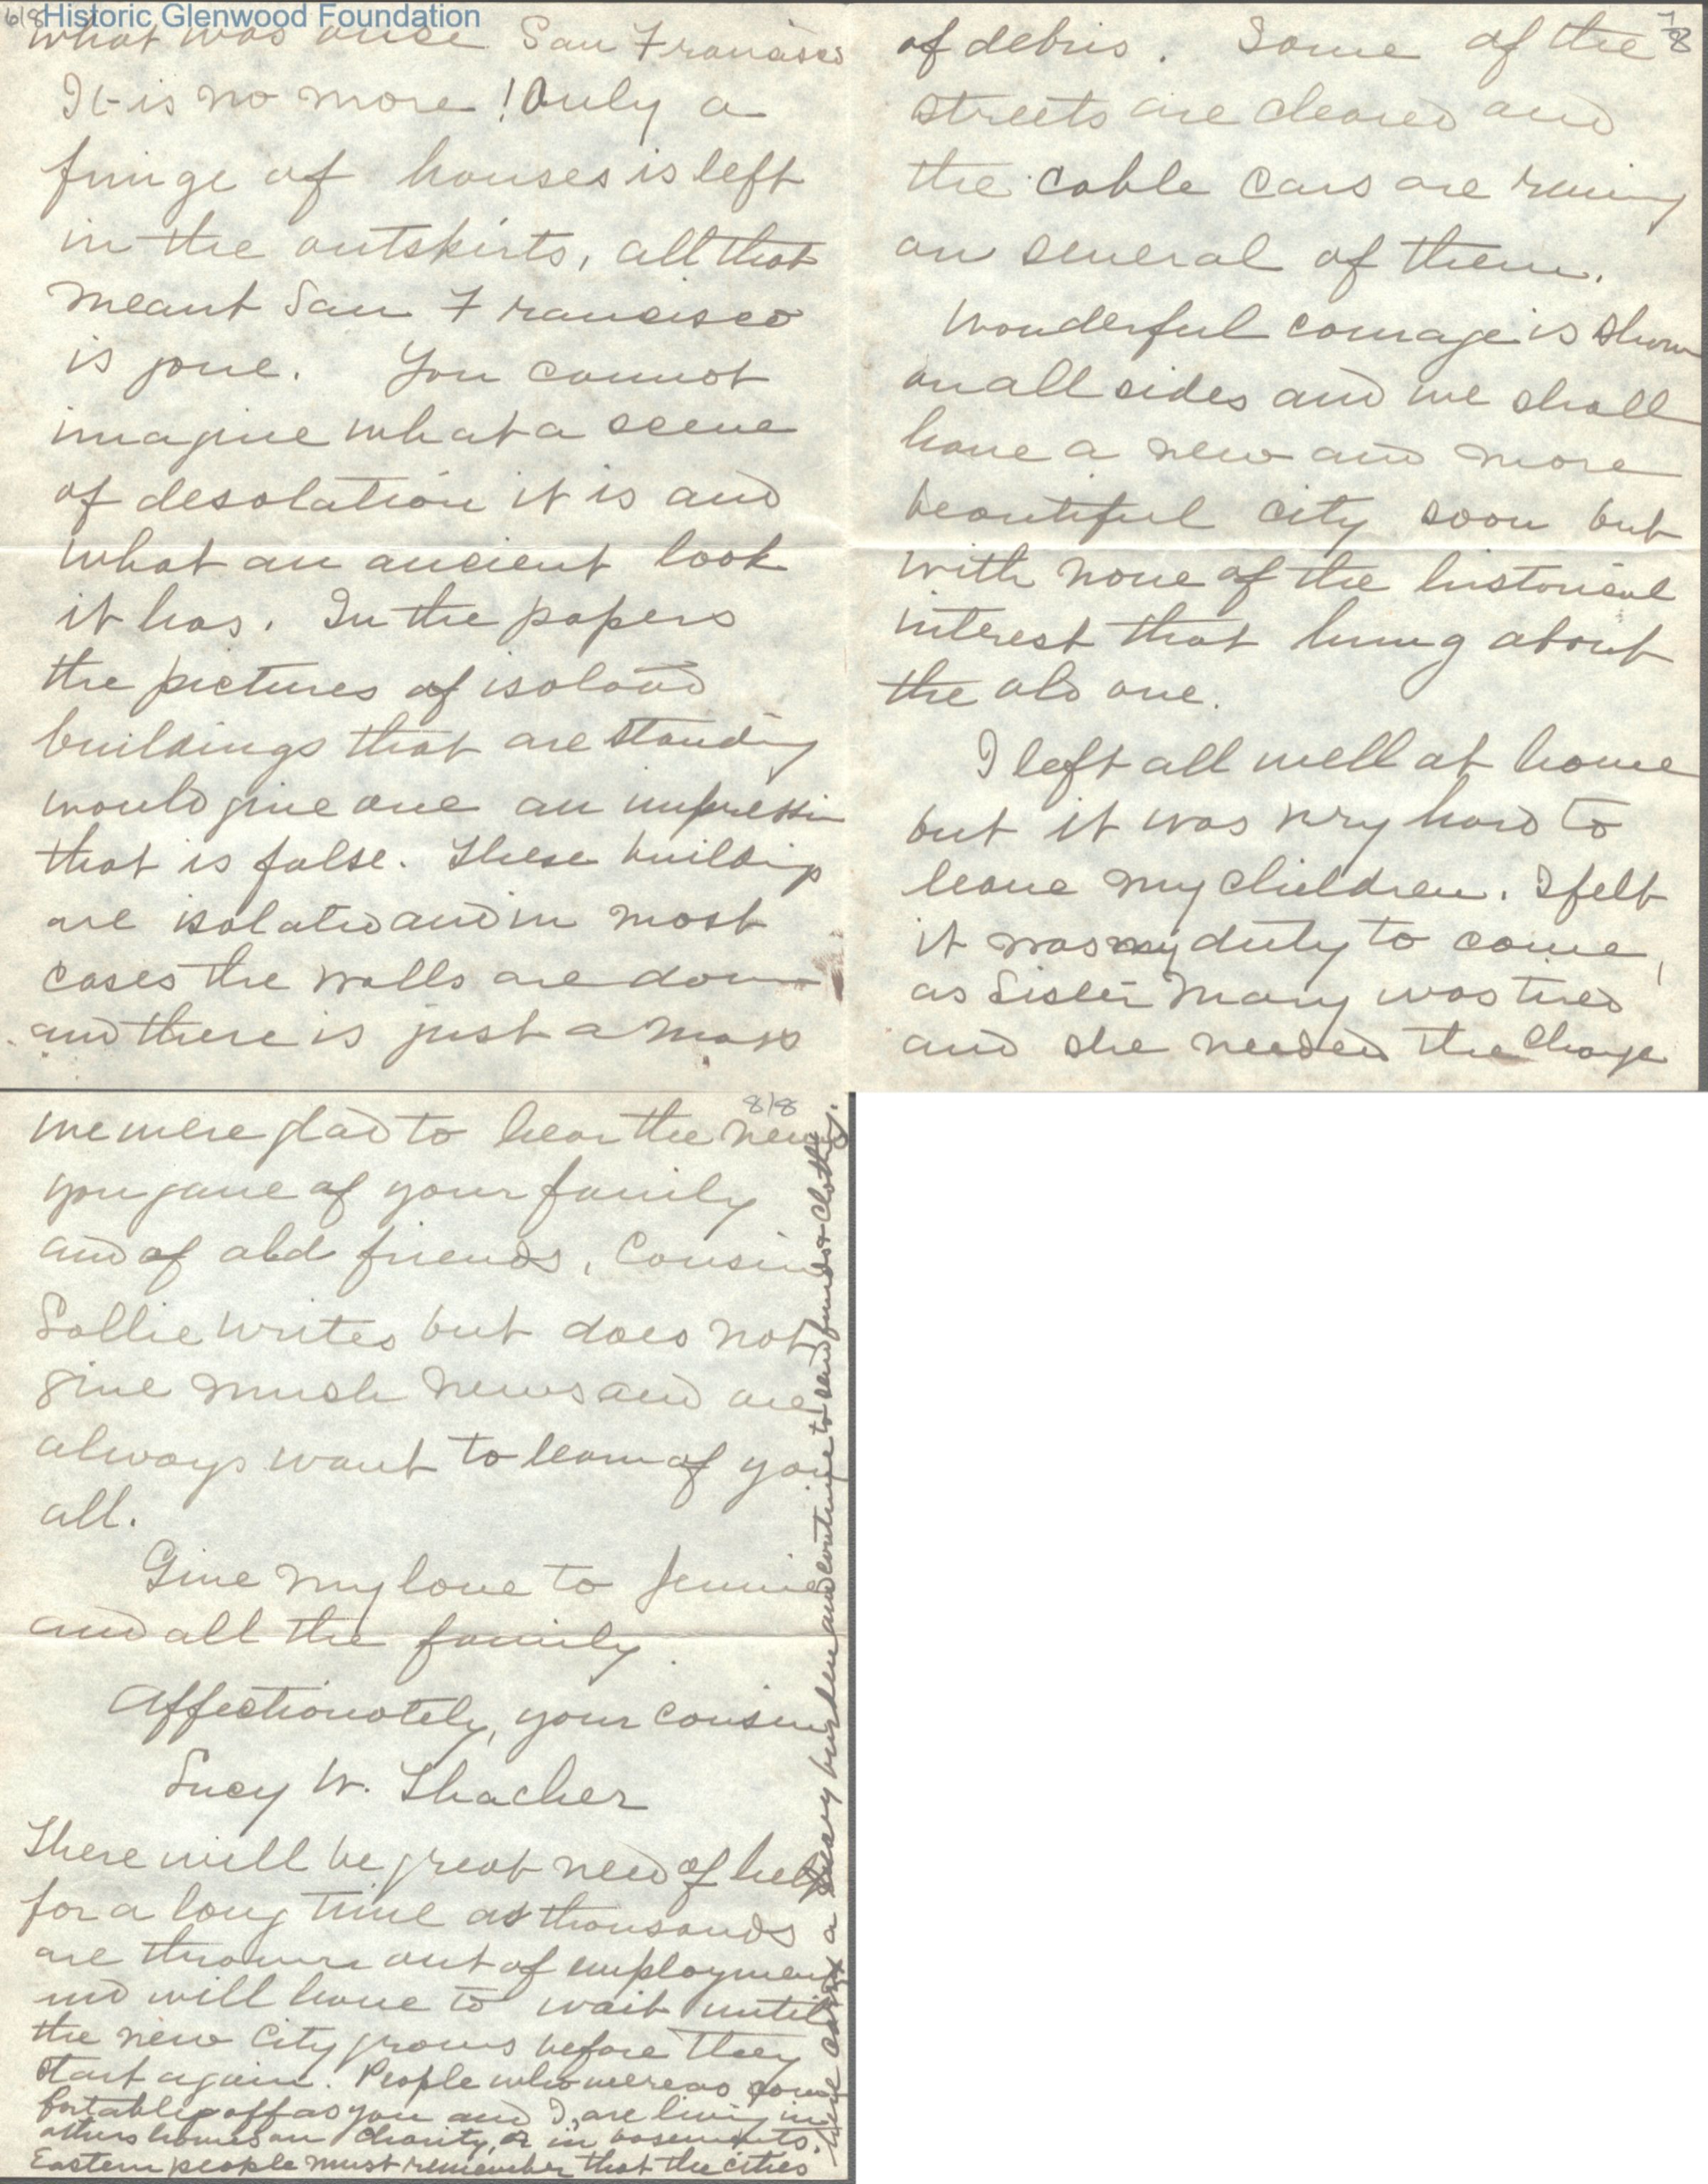 6/8
Historic Glenwood Foundation
what was once San Francisco
It is no more! Only a
fringe of houses is left
in the outskirts, all that
meant San Francisco
is gone. You cannot
imagine what a scene
of desolation it is and
what an ancient look
it has. In the papers
the pictures of isolated
buildings that are standing
would give one an impression
that is false. These buildings
are isolated and in most
cases the walls are down
and there is just a mass
7/8
of debris. Some of the
streets are cleared and
the cable cars are runing
on several of them.
Wonderful courage is shown
on all sides and we shall
have a new and more
beautiful city soon but
with none of the historical
interest that hung about
the old one.
I left all well at home
but it was very hard to
leave my children. I felt
it was my duty to come,
as Sister Mary was tired
and she needed the change
8/8
we were glad to hear the news
you gave of your family
and of old friends, Cousin
Sallie writes but does not
give much news and we
always want to learn of you
all.
Give my love to Jennie
and all the family.
Affectionately, your cousin
Lucy W. Thacher
There will be great need of help
for a long time as thousands
are thrown out of employment
and will have to wait until
the new city grows before they
start again. People who were as com
fortably off as you and I, are living in
others homes on charity, or in basements.
Eastern people must remember that the cities
here carry a heavy burden and continue to send funds & clothing.